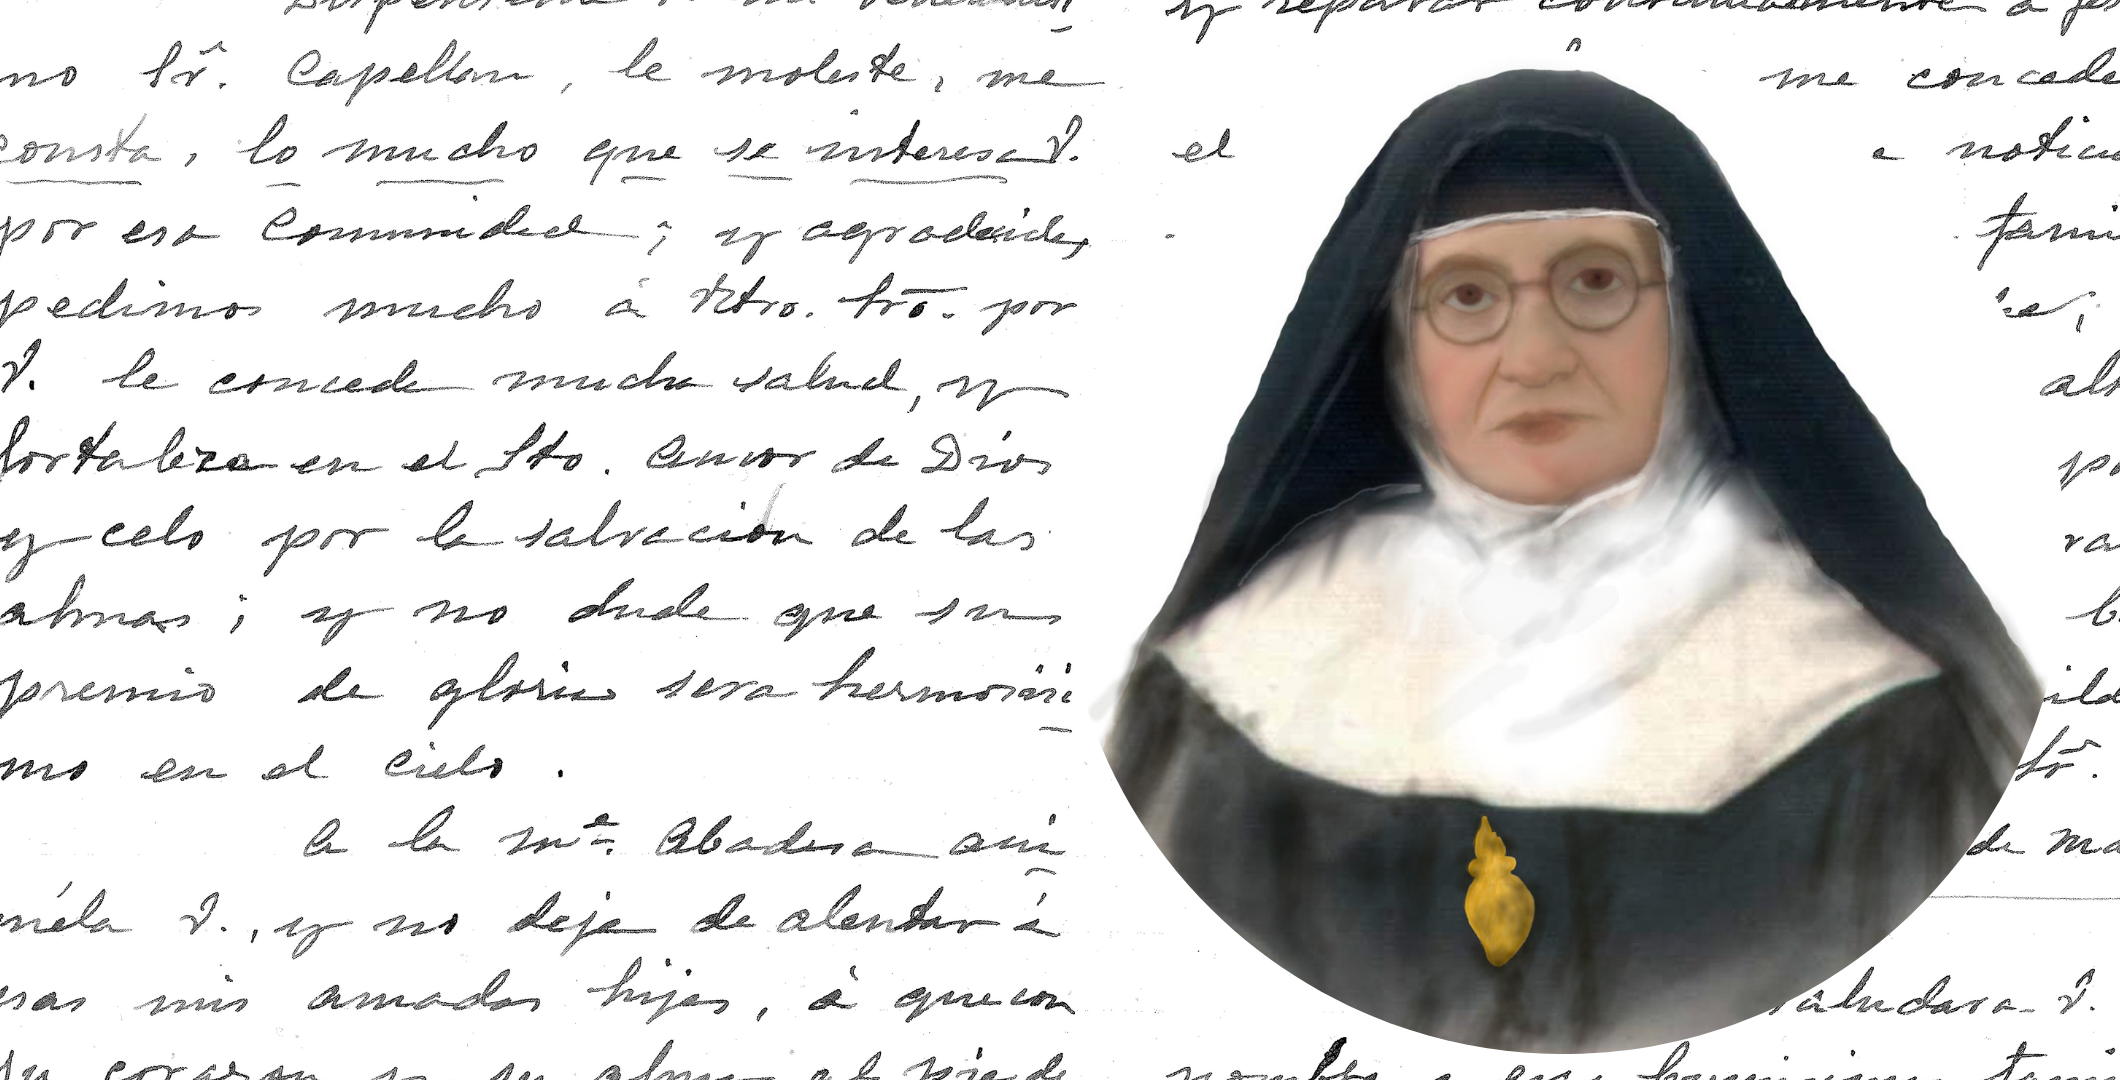 no Sr. Capellan, le moleste, me
consta, lo mucho que se interesa V.
por esa Comunidad; y agradecida,
pedimos mucho á Ntro. Sro. por
V. le conceda mucha salud, y
fortaleza en el Sto. Amor de Dios
y celo por la salvación de las
almas; y no dude que su
premio de gloria sera hermosisi
mo en el cielo.
A la Me. Abadesa aní
mela V., y no deja de alentar á
esas mis amadas hijas, á que con
su corazon y su alma al pie de
y reparar continuamente a
me conceda
el
noticia
de Ma
saludara V.